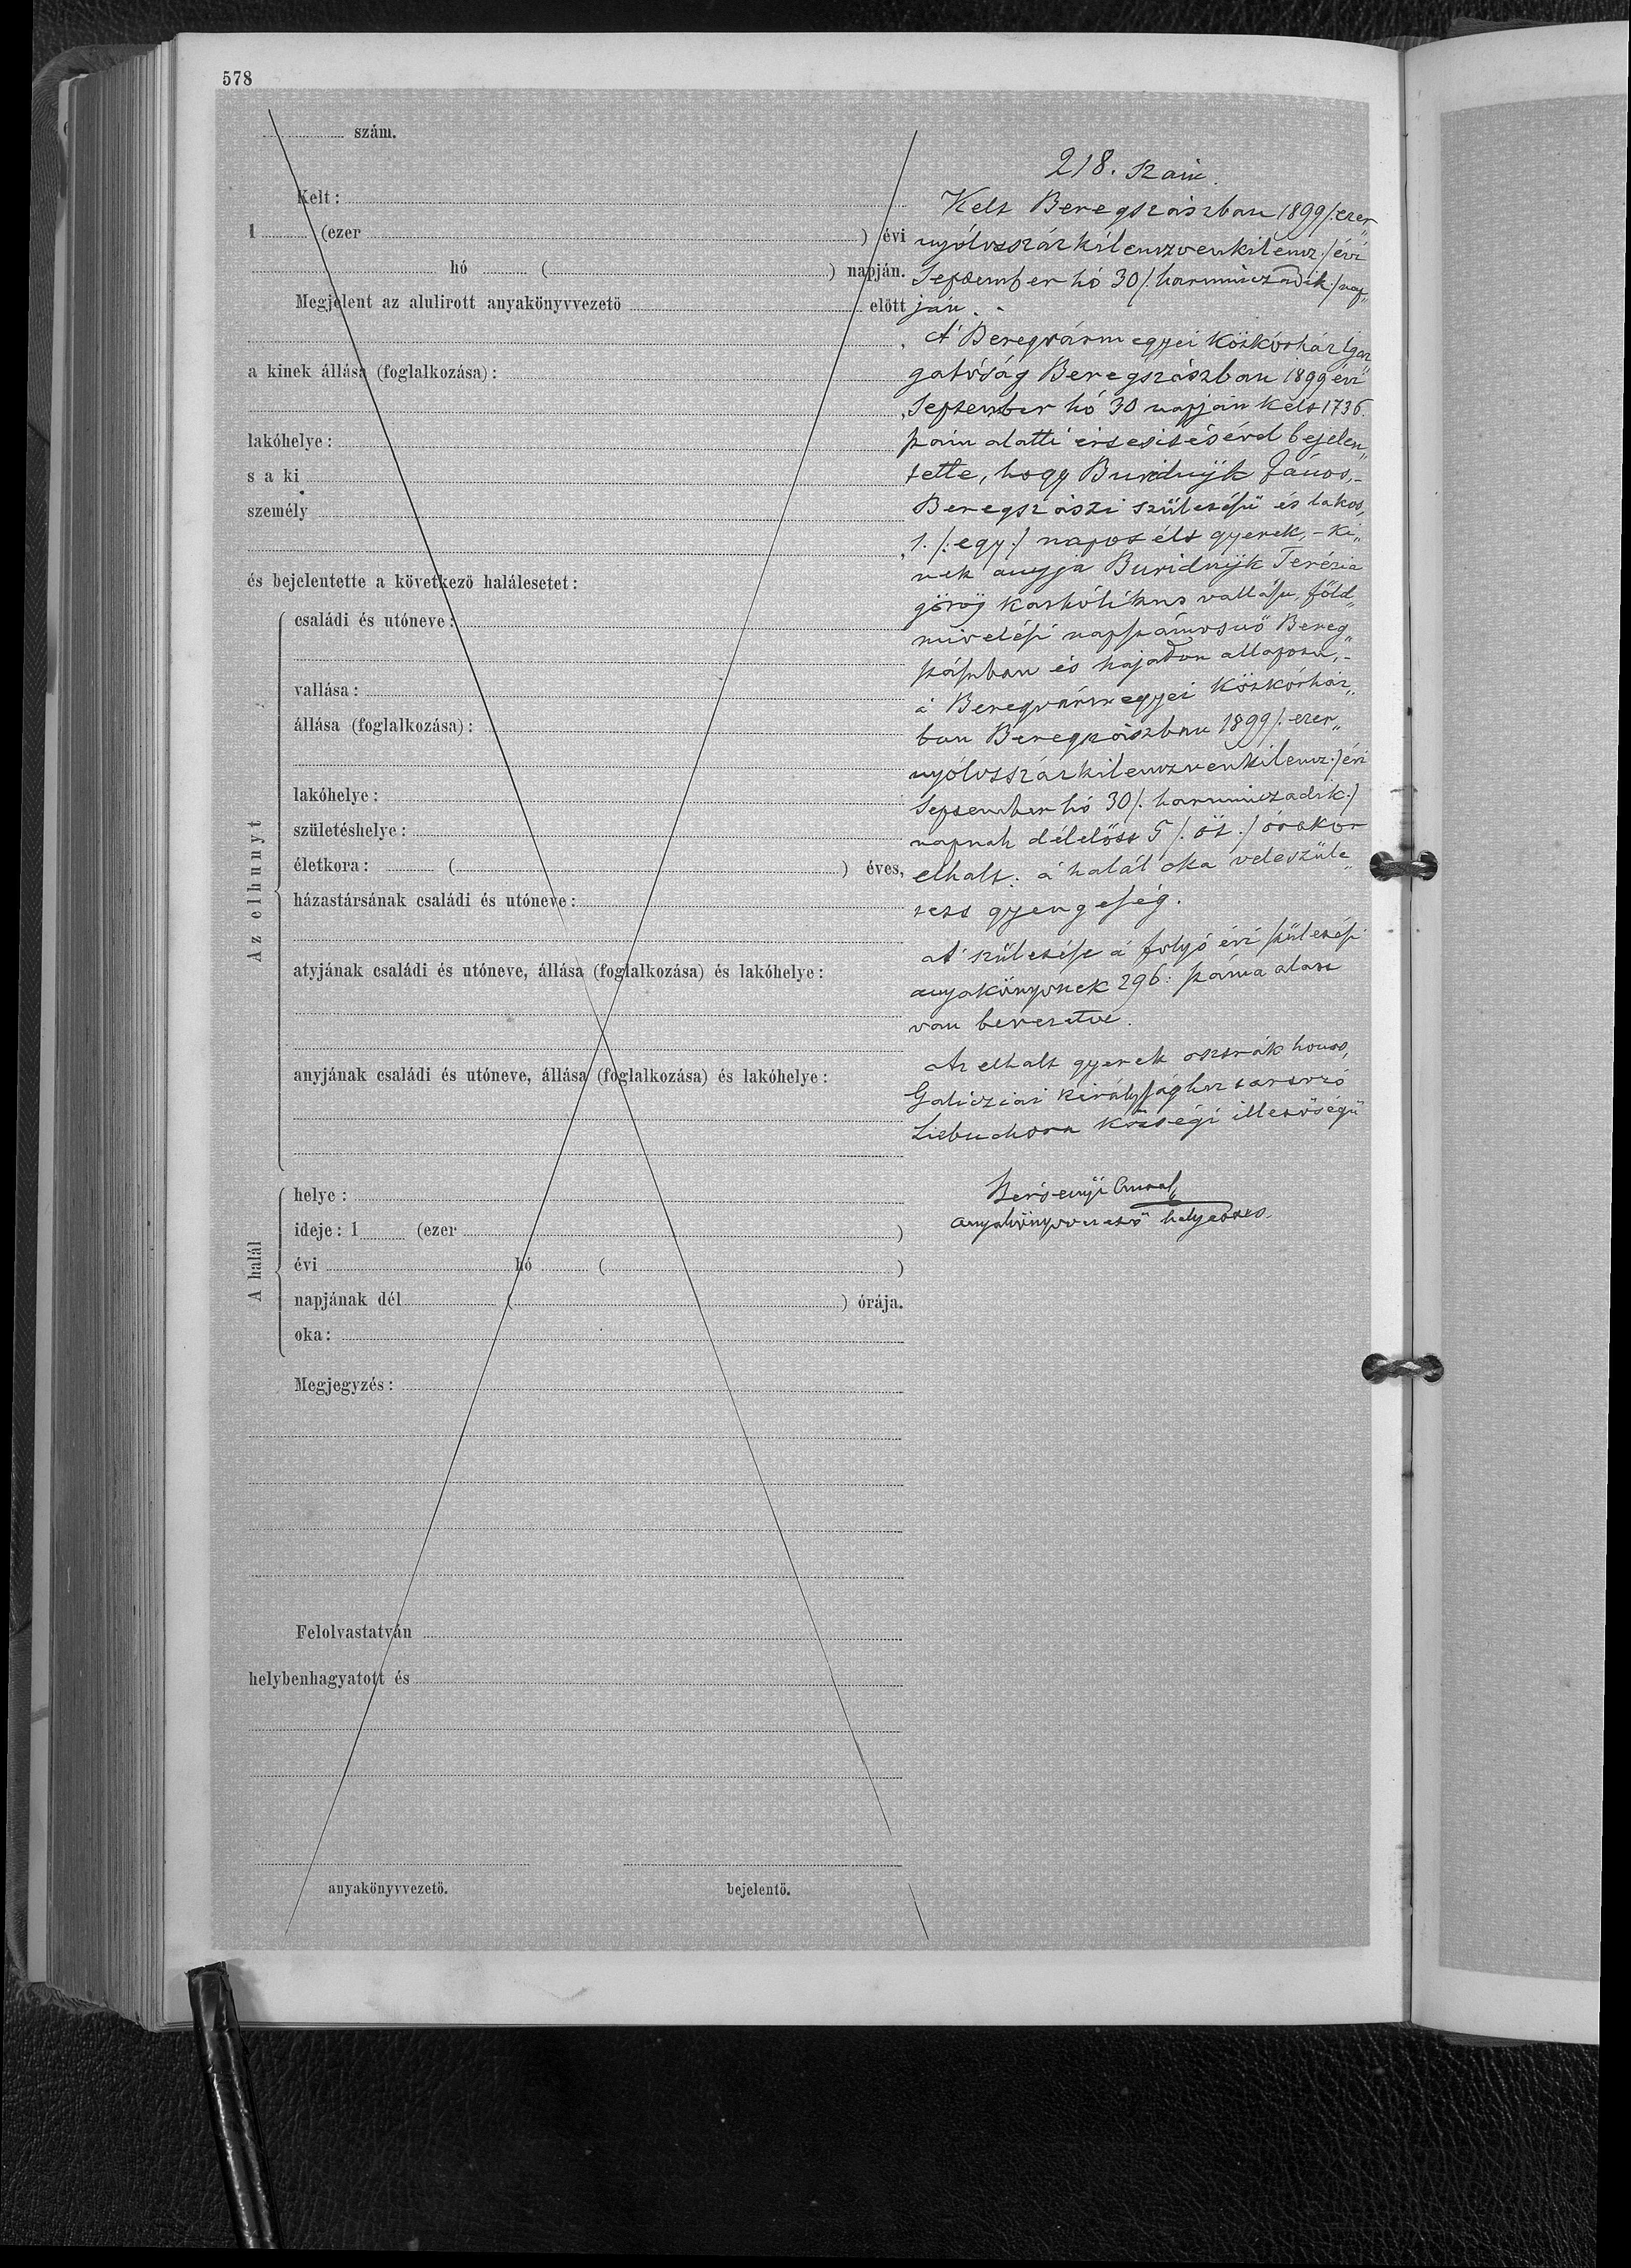 578
szám.
Kelt:
1 (ezer ) évi
hó ( ) napján.
Megjelent az alulirott anyakönyvvezetö elött
a kinek állása (foglalkozása):
lakóhelye:
s a ki
személy
és bejelentette a következö halálesetet:
Az elhunyt
családi és utóneve:
vallása:
állása (foglalkozása):
lakóhelye:
születéshelye:
életkora: ( ) éves,
házastársának családi és utóneve:
atyjának családi és utóneve, állása (foglalkozása) és lakóhelye:
anyjának családi és utóneve, állása (foglalkozása) és lakóhelye:
A halál
helye:
ideje: 1 (ezer )
évi hó ( )
napjának dél ( ) órája.
oka:
Megjegyzés:
Felolvastatván
helybenhagyatott és
anyakönyvvezetö. bejelentö.
218. szám
Kelt Beregszászban 1899/: ezer„
nyólcszázkilenczvenkilencz:/ évi
September hó 30/: harminczadik:/ nap„
ján.
A Beregvármegyei Közkórház Igaz
gatóság Beregszászban 1899 évi
September hó 30 napján kelt 1736.
szám alatti értesitésével bejelen„
tette, hogy Buridnyjk János,-
Beregszászi születésü és lakos,
1. /: egy:/ napot élt gyerek, - ki„
nek anyja Buridnyjk Terézia
görög katholikus vallásu, föld„
mivelési napszámosnö Bereg„
szászban és hajadon állapotu,-
a Beregvármegyei Közkórház„
ban Beregszászban 1899/: ezer„
nyólcszázkilenczvenkilencz:/ évi
September hó 30/: harminczadik:/
napnak délelőtt 5 /: öt:/ órakor
elhalt: a halál oka veleszüle„
tett gyengeség.
A születése a folyó évi születési
anyakönyvnek 296: száma alatt
van bevezetve.
Az elhalt gyerek osztrák honos,
Galicziai Királysághoz tartozó
Libuchora községi illetőségü
anyakönyvvezető helyettes.